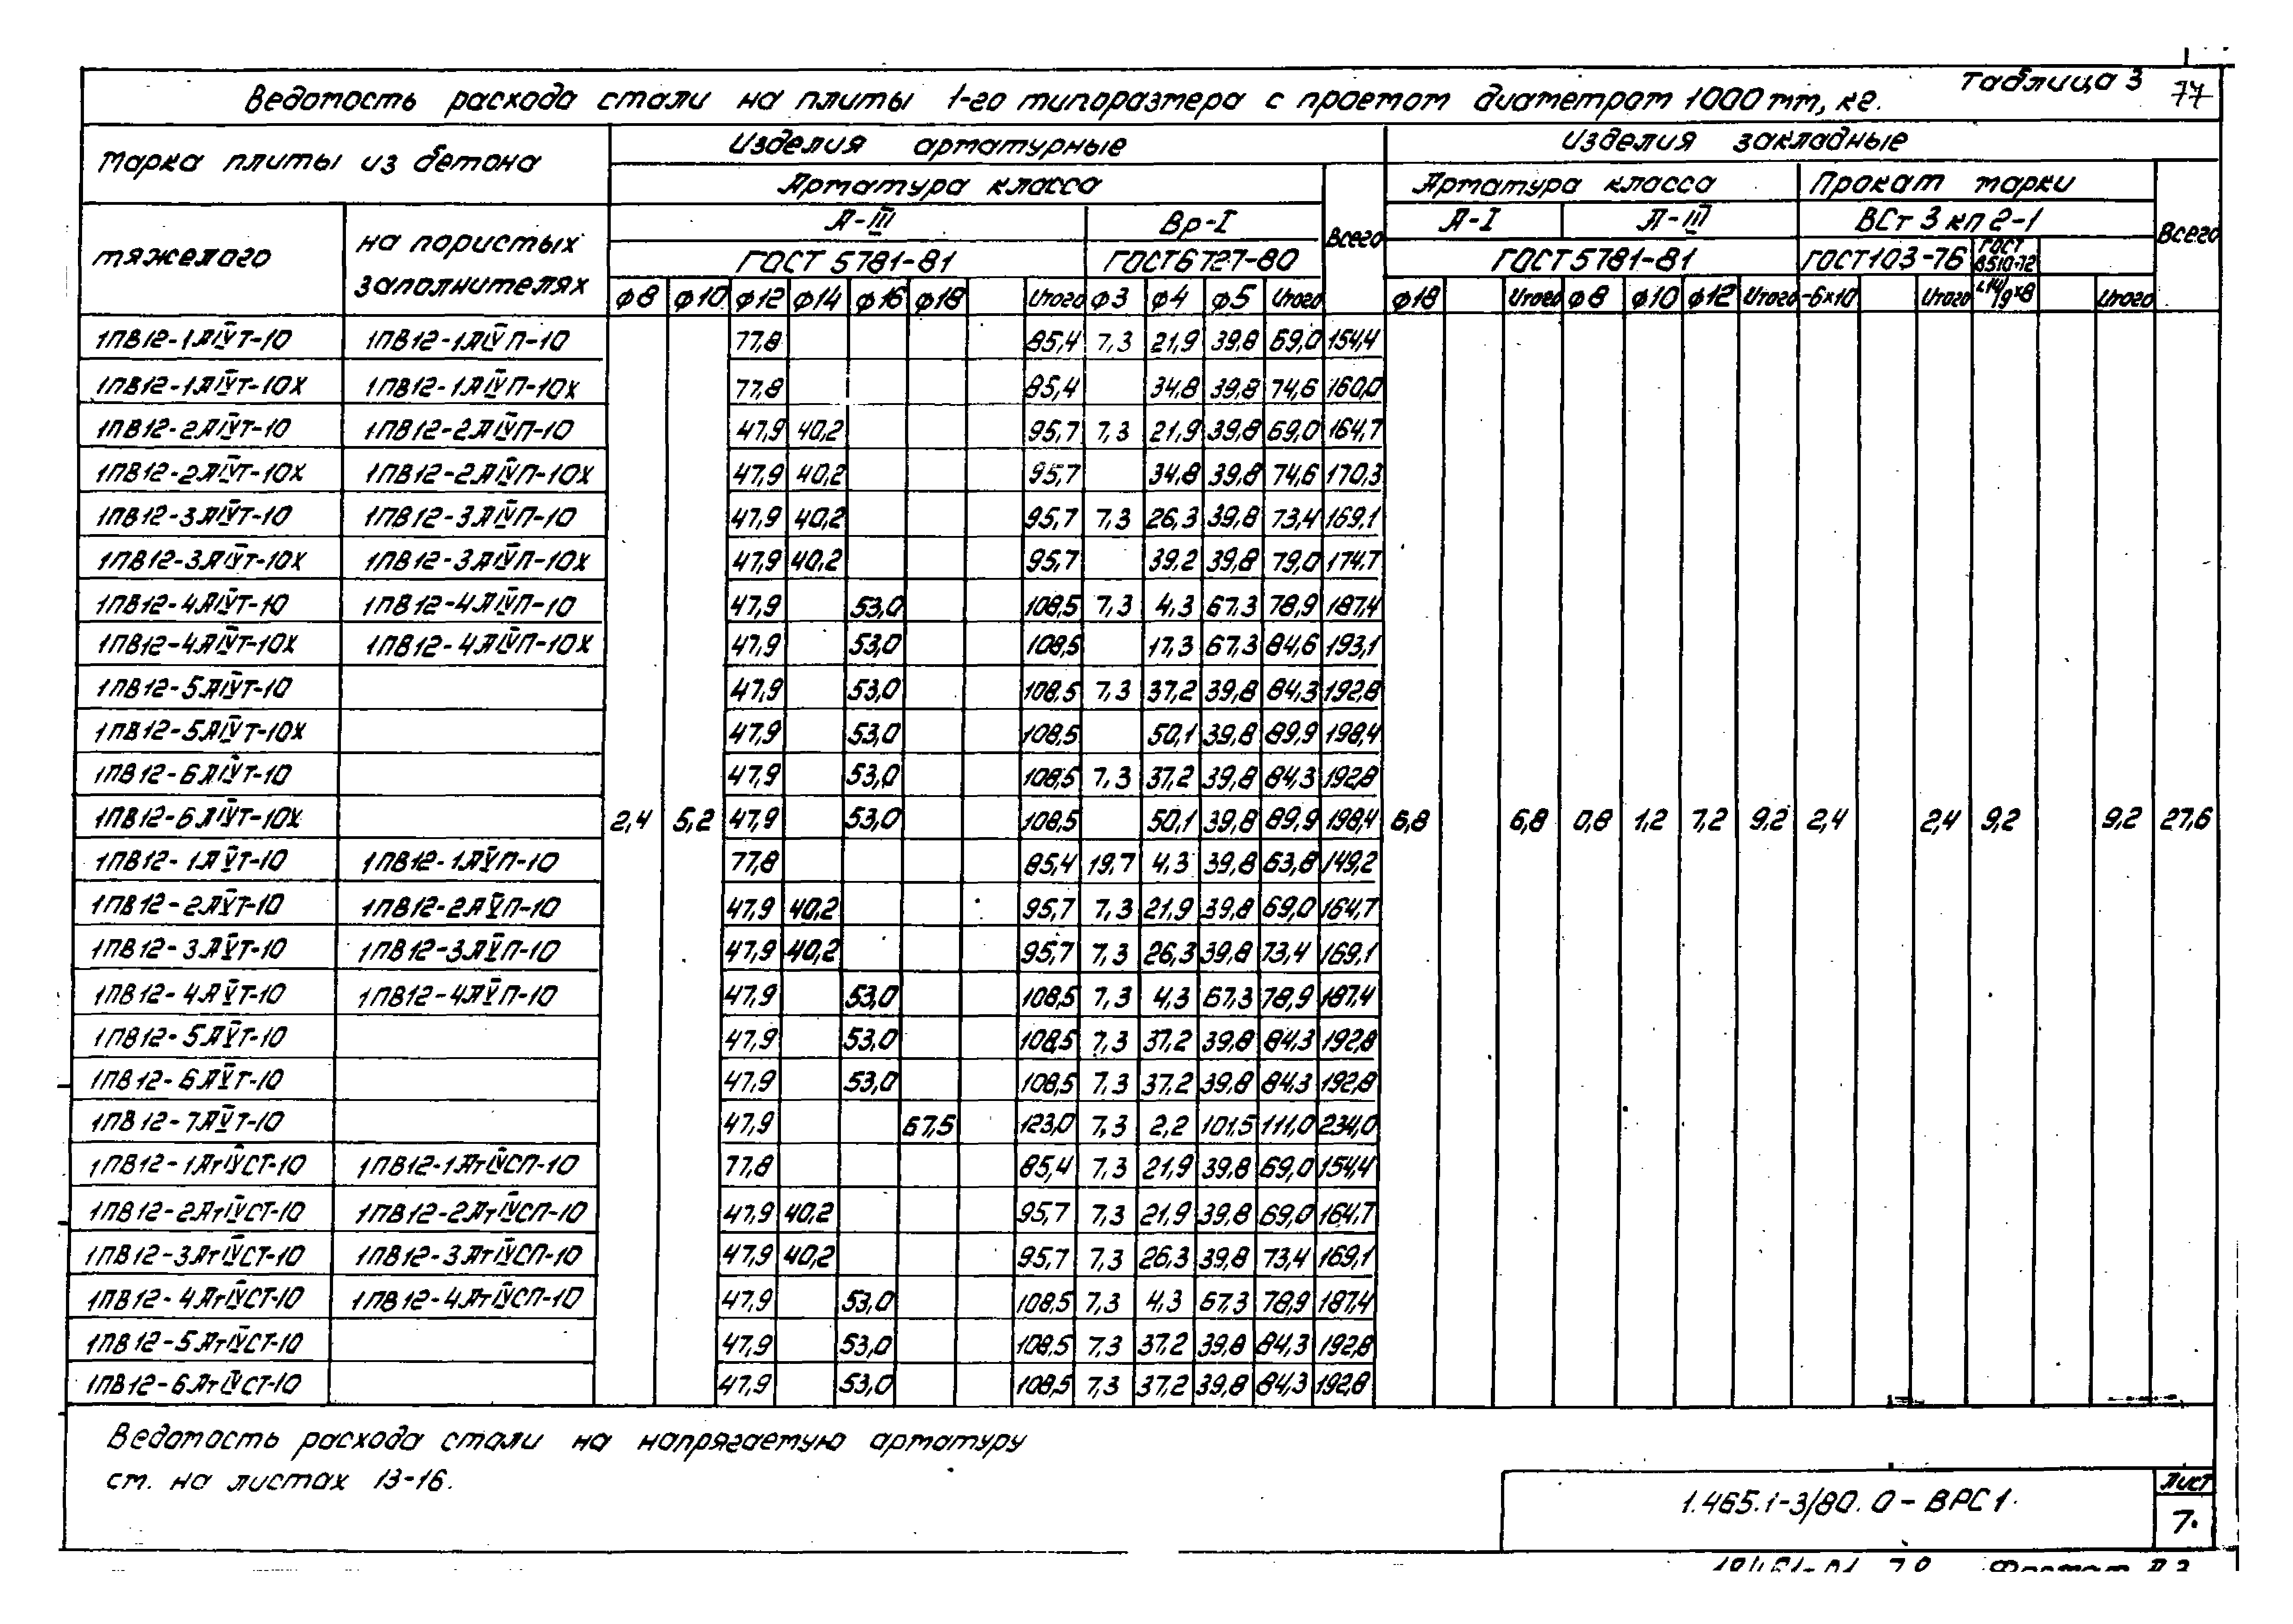 Таблица 3
77
Ведомость расхода стали на плиты 1-го типоразмера с проемом диаметром 1000 мм, кг.
Марка плиты из бетона
Изделия арматурные
Изделия закладные
Арматура класса
Всего
Арматура класса
Прокат марки
Всего
тяжелого
на пористых заполнителях
А-III
Вр-I
А-I
А-III
ВСт 3 кп 2-1
ГОСТ 5781-81
ГОСТ 6727-80
ГОСТ 5781-81
ГОСТ 103-76
ГОСТ 8510-72
ф8 ф10 ф12 ф14 ф16 ф18 Итого ф3 ф4 ф5 Итого ф18 Итого ф8 ф10 ф12 Итого -6×10 Итого Итого
1ПВ12-1АIVТ-10 1ПВ12-1АIVП-10 77,8 85,4 7,3 21,9 39,8 69,0 154,4
1ПВ12-1АIVТ-10Х 1ПВ12-1АIVП-10Х 77,8 85,4 34,8 39,8 74,6 160,0
1ПВ12-2АIVТ-10 1ПВ12-2АIVП-10 47,9 40,2 95,7 7,3 21,9 39,8 69,0 164,7
1ПВ12-2АIVТ-10Х 1ПВ12-2АIVП-10Х 47,9 40,2 95,7 34,8 39,8 74,6 170,3
1ПВ12-3АIVТ-10 1ПВ12-3АIVП-10 47,9 40,2 95,7 7,3 26,3 39,8 73,4 169,1
1ПВ12-3АIVТ-10Х 1ПВ12-3АIVП-10Х 47,9 40,2 95,7 39,2 39,8 79,0 174,7
1ПВ12-4АIVТ-10 1ПВ12-4АIVП-10 47,9 53,0 108,5 7,3 4,3 67,3 78,9 187,4
1ПВ12-4АIVТ-10Х 1ПВ12-4АIVП-10Х 47,9 53,0 108,5 17,3 67,3 84,6 193,1
1ПВ12-5АIVТ-10 47,9 53,0 108,5 7,3 37,2 39,8 84,3 192,8
1ПВ12-5АIVТ-10Х 47,9 53,0 108,5 50,1 39,8 89,9 198,4
1ПВ12-6АIVТ-10 47,9 53,0 108,5 7,3 37,2 39,8 84,3 192,8
1ПВ12-6АIVТ-10Х 2,4 5,2 47,9 53,0 108,5 50,1 39,8 89,9 198,4 6,8 6,8 0,8 1,2 7,2 9,2 2,4 2,4 9,2 9,2 27,6
1ПВ12-1АVТ-10 1ПВ12-1АVП-10 77,8 85,4 19,7 4,3 39,8 63,8 149,2
1ПВ12-2АVТ-10 1ПВ12-2АVП-10 47,9 40,2 95,7 7,3 21,9 39,8 69,0 164,7
1ПВ12-3АVТ-10 1ПВ12-3АVП-10 47,9 40,2 95,7 7,3 26,3 39,8 73,4 169,1
1ПВ12-4АVТ-10 1ПВ12-4АVП-10 47,9 53,0 108,5 7,3 4,3 67,3 78,9 187,4
1ПВ12-5АVТ-10 47,9 53,0 108,5 7,3 37,2 39,8 84,3 192,8
1ПВ12-6АVТ-10 47,9 53,0 108,5 7,3 37,2 39,8 84,3 192,8
1ПВ12-7АVТ-10 47,9 67,5 123,0 7,3 2,2 101,5 111,0 234,0
1ПВ12-1АтIVСТ-10 1ПВ12-1АтIVСП-10 77,8 85,4 7,3 21,9 39,8 69,0 154,4
1ПВ12-2АтIVСТ-10 1ПВ12-2АтIVСП-10 47,9 40,2 95,7 7,3 21,9 39,8 69,0 164,7
1ПВ12-3АтIVСТ-10 1ПВ12-3АтIVСП-10 47,9 40,2 95,7 7,3 26,3 39,8 73,4 169,1
1ПВ12-4АтIVСТ-10 1ПВ12-4АтIVСП-10 47,9 53,0 108,5 7,3 4,3 67,3 78,9 187,4
1ПВ12-5АтIVСТ-10 47,9 53,0 108,5 7,3 37,2 39,8 84,3 192,8
1ПВ12-6АтIVСТ-10 47,9 53,0 108,5 7,3 37,2 39,8 84,3 192,8
Ведомость расхода стали на напрягаемую арматуру
см. на листах 13-16.
1.465.1-3/80.0-ВРС1
Лист
7